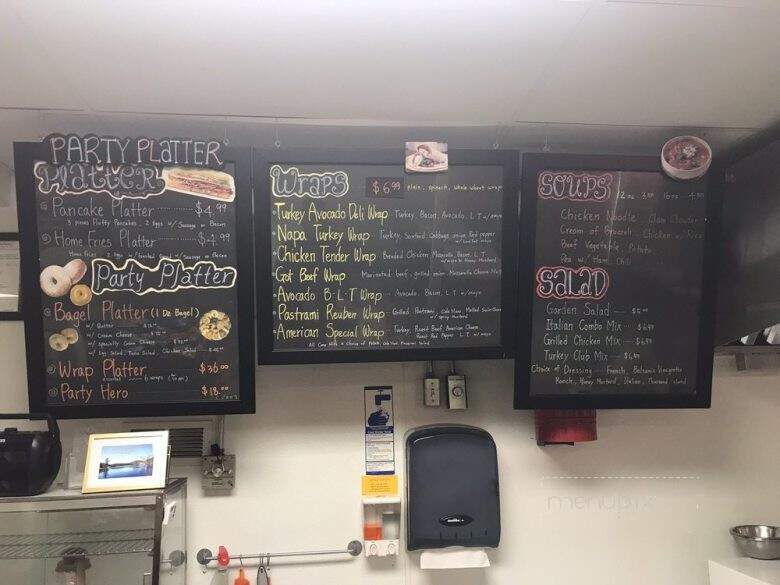 PARTY PLATTER
Platter
Pancake Platter $4.99
3 pieces Fluffy Pancakes, 2 Eggs w/ Sausage or Bacon
Home Fries Platter $4.99
Home Fries, 2 Eggs w/ Toast w/ Sausage or Bacon
Party Platter
Bagel Platter (1 Dz Bagel)
w/ Butter
w/ Cream Cheese
w/ Specialty Cream Cheese
w/ Egg Salad, Tuna Salad, Chicken Salad
Wrap Platter $36.00
6 wraps
Party Hero $18.00
Wraps $6.99 plain, spinach, whole wheat wrap
Turkey Avocado Deli Wrap Turkey, Bacon, Avocado, L.T w/ mayo
Napa Turkey Wrap Turkey, Sauteed Cabbage, onion, Red pepper
Chicken Tender Wrap Breaded Chicken, Mozzarella, Bacon, L.T
w/ mayo or Honey Mustard
Got Beef Wrap Marinated beef, grilled onion, Mozzarella Cheese
Avocado B·L·T Wrap Avocado, Bacon, L.T w/ mayo
Pastrami Reuben Wrap Grilled Pastrami, Cole Slaw, Melted Swiss
w/ Spicy Mustard
American Special Wrap Turkey, Roast Beef, American Cheese
Roast Red Pepper L.T w/ mayo
All Come With A Choice of Potato, Cole Slaw, Macaroni Salad
SOUPS 12 oz 16 oz
Chicken Noodle Clam Chowder
Cream of Broccoli Chicken w/ Rice
Beef Vegetable Potato
Pea w/ Ham Chili
SALAD
Garden Salad
Italian Combo Mix $6.49
Grilled Chicken Mix $6.49
Turkey Club Mix $6.49
Choice of Dressing French, Balsamic Vinaigrette
Ranch, Honey Mustard, Italian, Thousand island
menupix